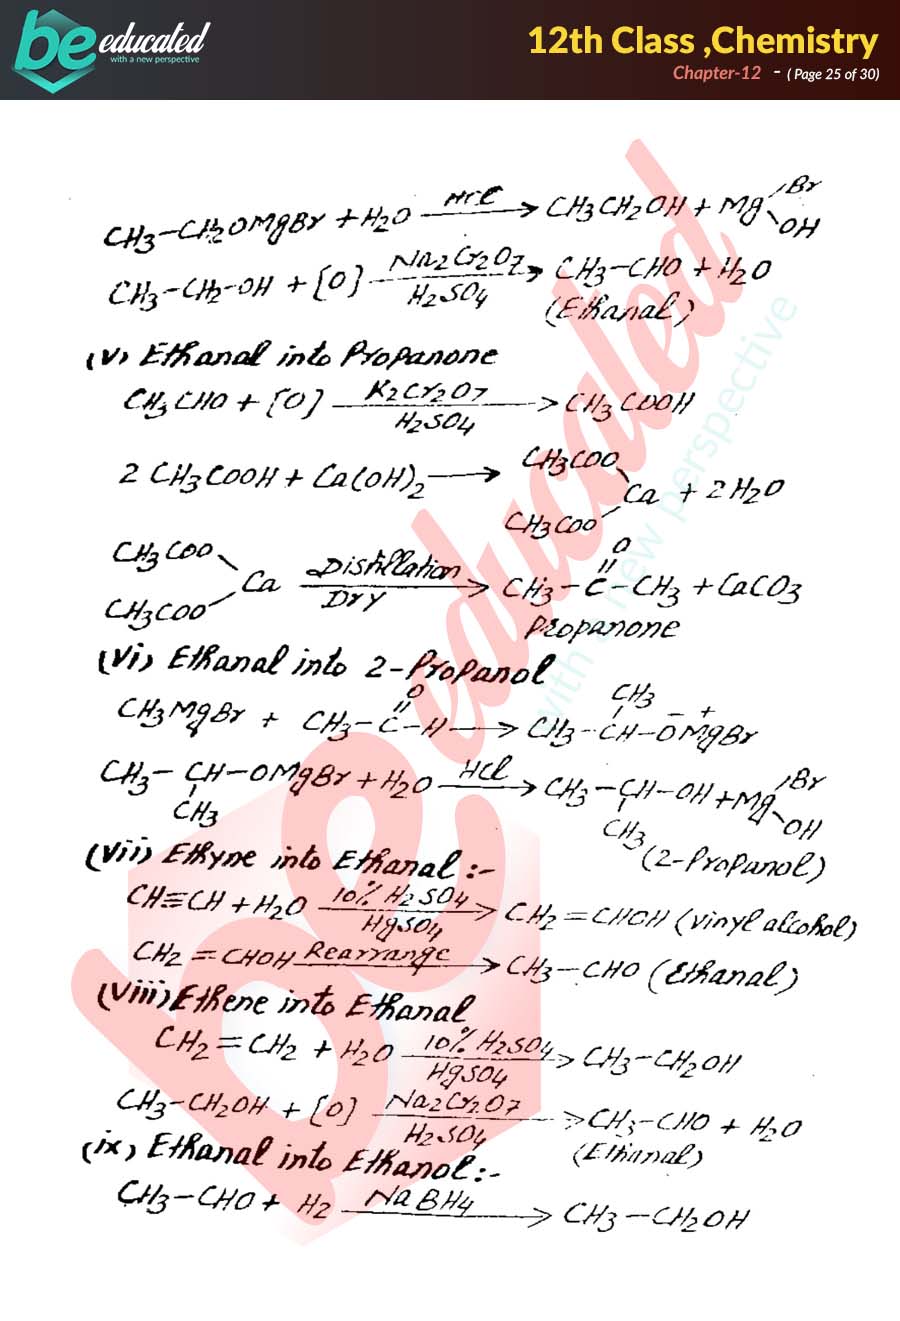 be educated
with a new perspective
12th Class ,Chemistry
Chapter-12 - ( Page 25 of 30)
CH3-CH2OMgBr + H2O HCl → CH3CH2OH + Mg Br OH
CH3-CH2-OH + [O] Na2Cr2O7 H2SO4 → CH3-CHO + H2O
(Ethanal)
(v) Ethanal into Propanone
CH3CHO + [O] K2Cr2O7 H2SO4 → CH3COOH
2 CH3COOH + Ca(OH)2 → CH3COO CH3COO Ca + 2H2O
CH3COO CH3COO Ca Distillation Dry → CH3-C-CH3 + CaCO3
O
Propanone
(vi) Ethanal into 2-Propanol
CH3MgBr + CH3-C-H → CH3-CH-OMgBr
O CH3 - +
CH3-CH-OMgBr + H2O HCl → CH3-CH-OH + Mg Br OH
CH3 CH3
(2-Propanol)
(vii) Ethyne into Ethanal :-
CH≡CH + H2O 10% H2SO4 HgSO4 → CH2=CHOH (vinyl alcohol)
CH2=CHOH Rearrange → CH3-CHO (Ethanal)
(viii) Ethene into Ethanal
CH2=CH2 + H2O 10% H2SO4 HgSO4 → CH3-CH2OH
CH3-CH2OH + [O] Na2Cr2O7 H2SO4 → CH3-CHO + H2O
(Ethanal)
(ix) Ethanal into Ethanol :-
CH3-CHO + H2 NaBH4 → CH3-CH2OH
be educated
with a new perspective